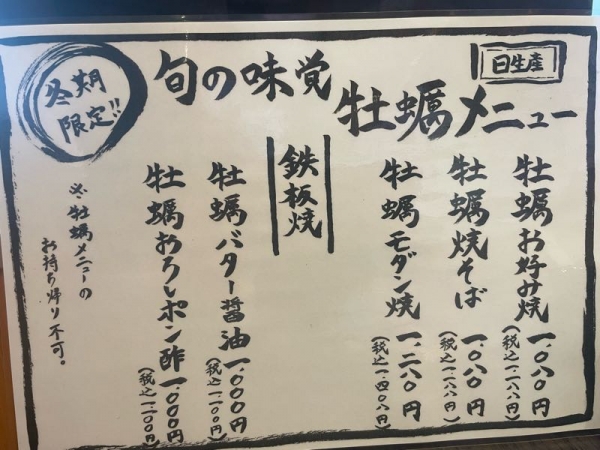 冬期
限定!!
旬の味覚
日生産
牡蠣メニュー
牡蠣お好み焼 一、〇八〇円
(税込一、一八八円)
牡蠣焼そば 一、〇八〇円
(税込一、一八八円)
牡蠣モダン焼 一、二八〇円
(税込一、四〇八円)
鉄板焼
牡蠣バター醤油 一、〇〇〇円
(税込一、一〇〇円)
牡蠣おろしポン酢 一、〇〇〇円
(税込一、一〇〇円)
※牡蠣メニューの
お持ち帰り不可。